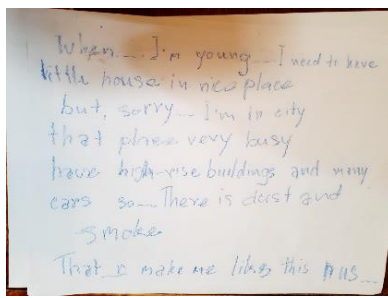 When.... I'm young... I need to have
little house in nice place
but, sorry... I'm in city
that place very busy
have high-rise buildings and many
cars so... There is dust and
smoke
That make me likes this